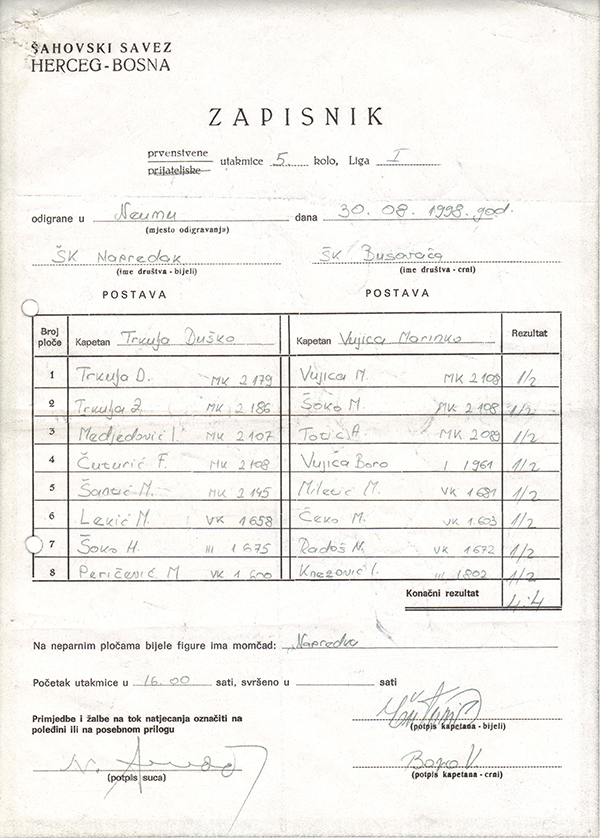 ŠAHOVSKI SAVEZ
HERCEG-BOSNA
ZAPISNIK
prvenstvene
prijateljske
utakmice 5. kolo, Liga I
odigrane u Neumu dana 30. 08. 1998. god.
(mjesto odigravanja)
ŠK Napredak ŠK Busovača
(ime društva - bijeli) (ime društva - crni)
POSTAVA POSTAVA
Broj ploče Kapetan Trkulja Duško Kapetan Vujica Marinko Rezultat
1 Trkulja D. MK 2179 Vujica M. MK 2108 1/2
2 Trkulja Z. MK 2186 Šoko M. MK 2198 1/2
3 Medjedović I. MK 2107 Totić A. MK 2089 1/2
4 Čuturić F. MK 2108 Vujiča Boro I 1961 1/2
5 Šantić M. MK 2145 Miletić M. VK 1681 1/2
6 Lekić M. VK 1658 Čeko M. VK 1603 1/2
7 Šoko H. III 1675 Radoš N. VK 1672 1/2
8 Peričević M VK 1600 Knezović I. III 1802 1/2
Konačni rezultat 4:4
Na neparnim pločama bijele figure ima momčad: Napredka
Početak utakmice u 16.00 sati, svršeno u sati
Primjedbe i žalbe na tok natjecanja označiti na
poleđini ili na posebnom prilogu
(potpis kapetana - bijeli)
Boro V.
(potpis suca) (potpis kapetana - crni)